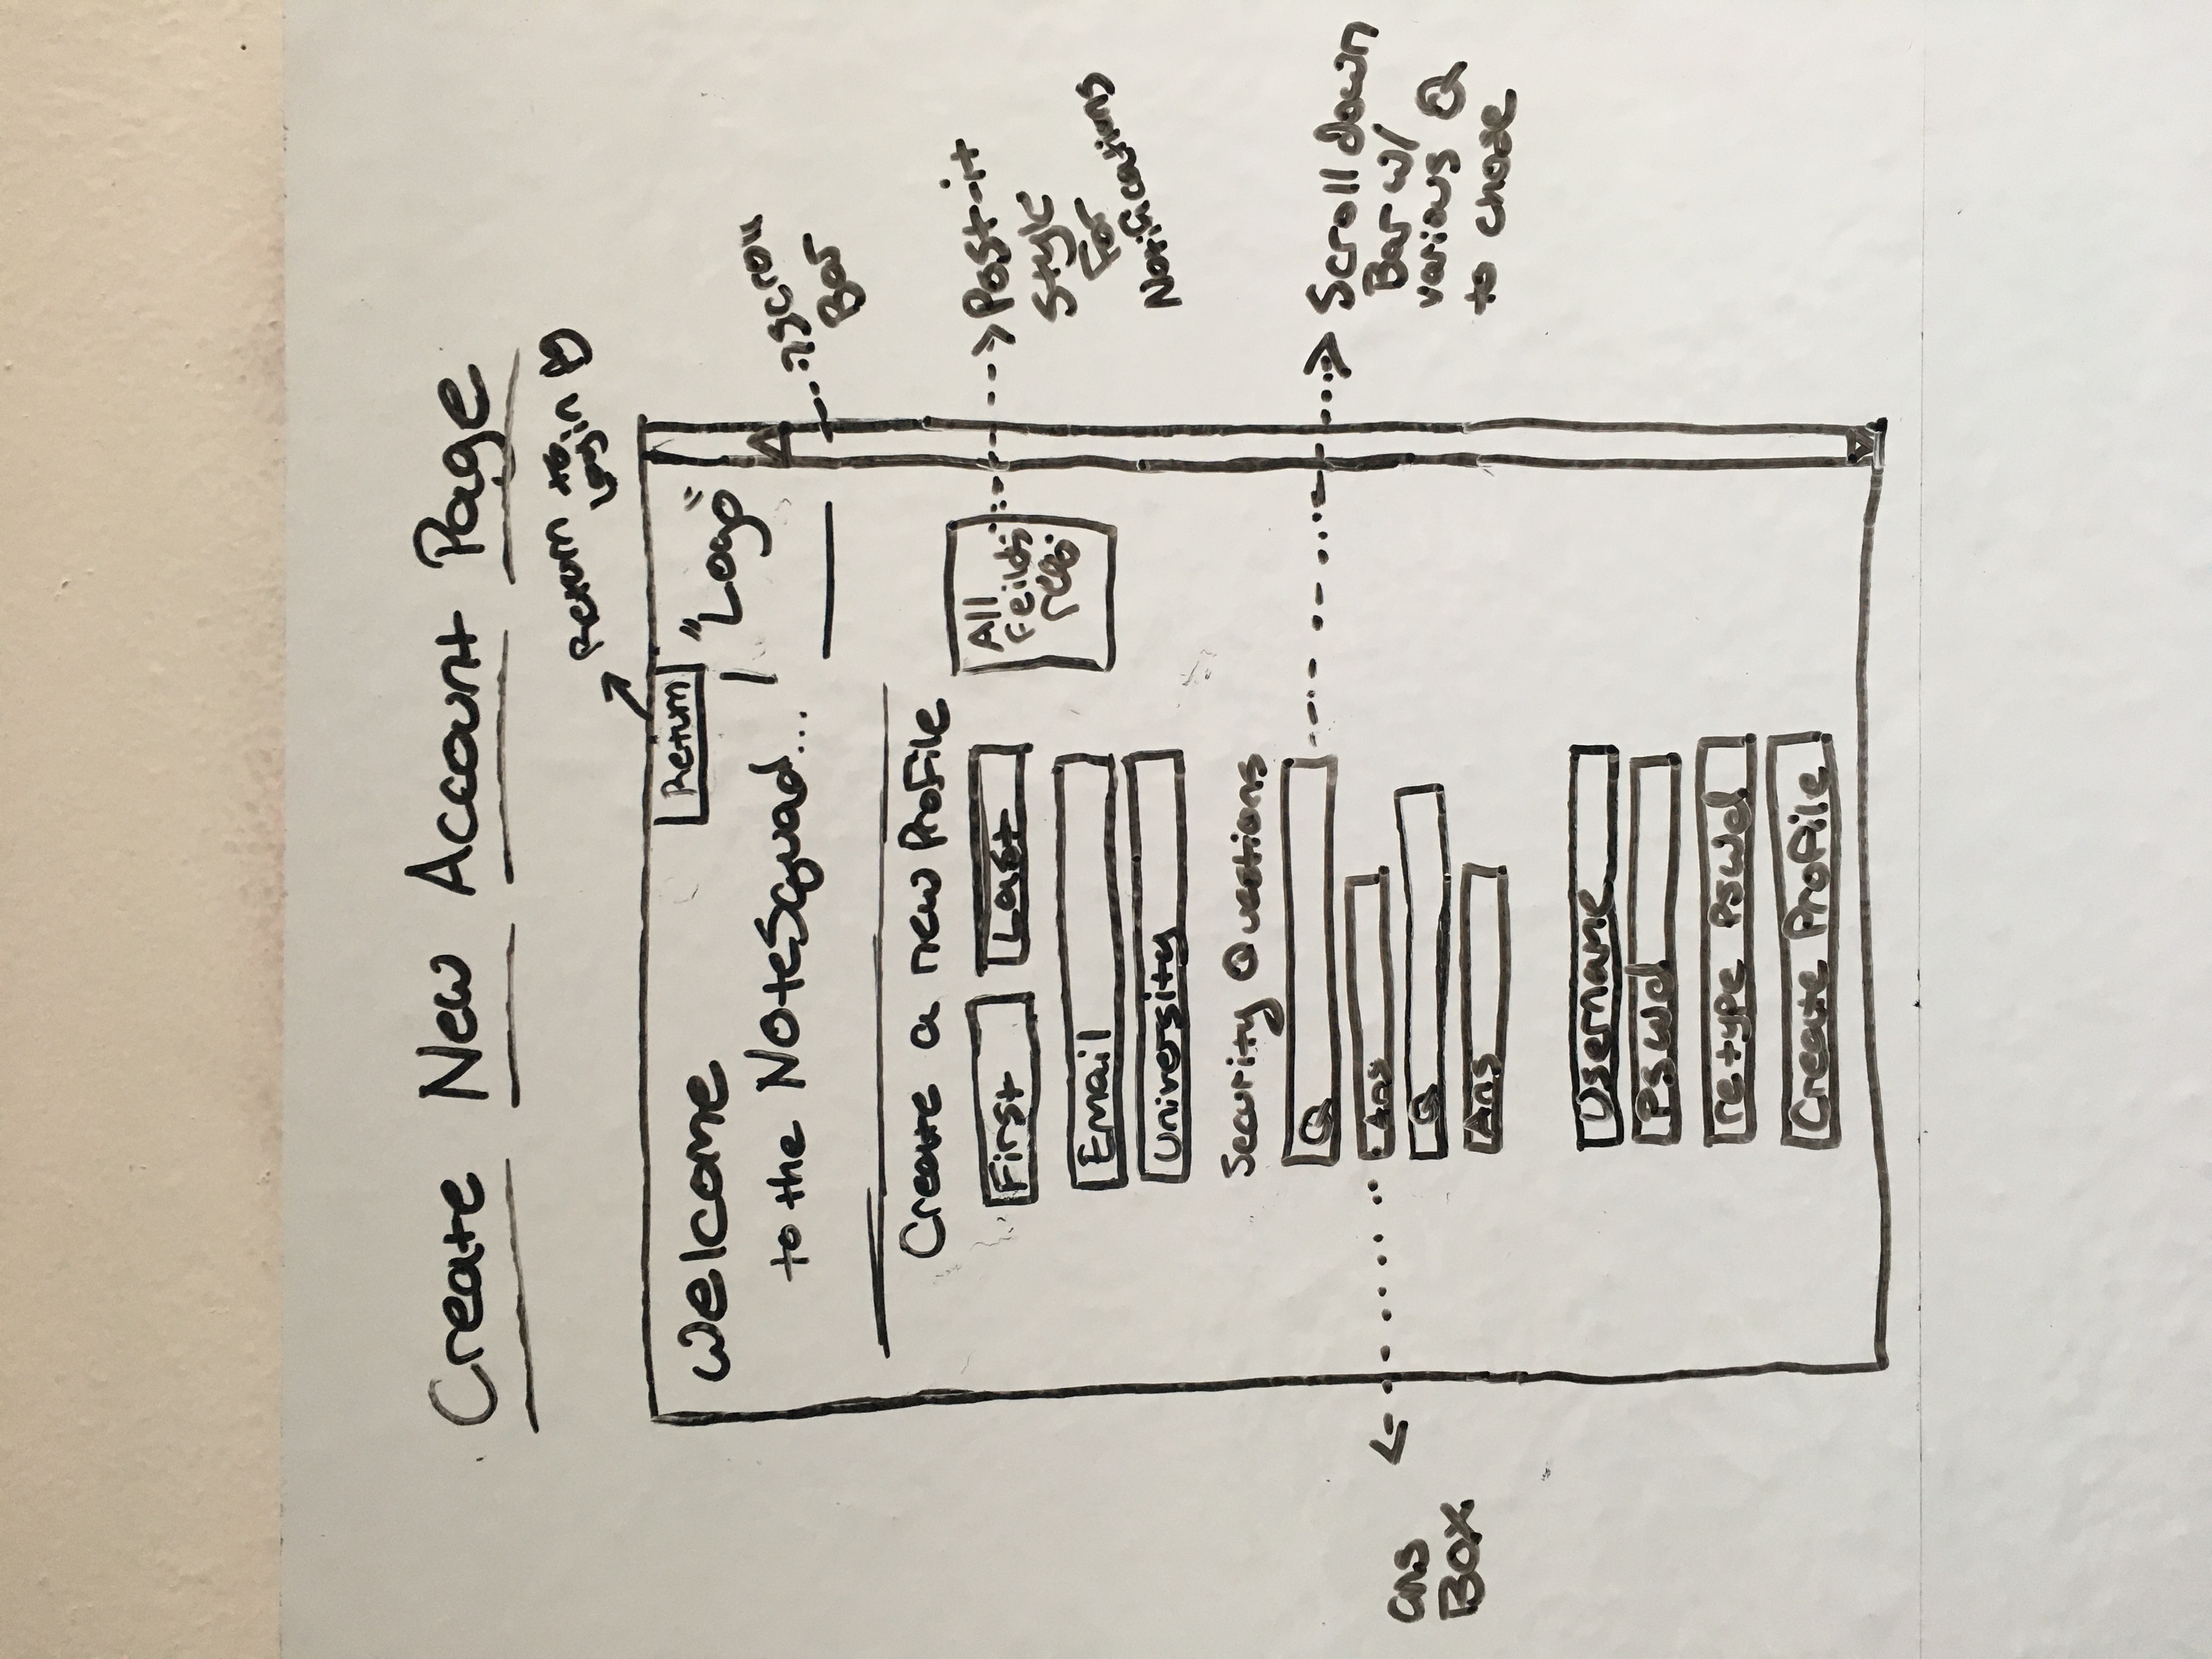 Create New Account Page
Return to
Login Pg
Return
Welcome
"Logo"
to the NoteSquad...
scroll
Bar
Create a new Profile
First
Last
All
Feilds
req.
Post-it
Style
For
Notifications
Email
University
Security Questions
Q
Scroll down
Bar w/
various Q
to chose
Ans
ans
Box
Q
Ans
Username
Pswd
retype Pswd
Create Profile